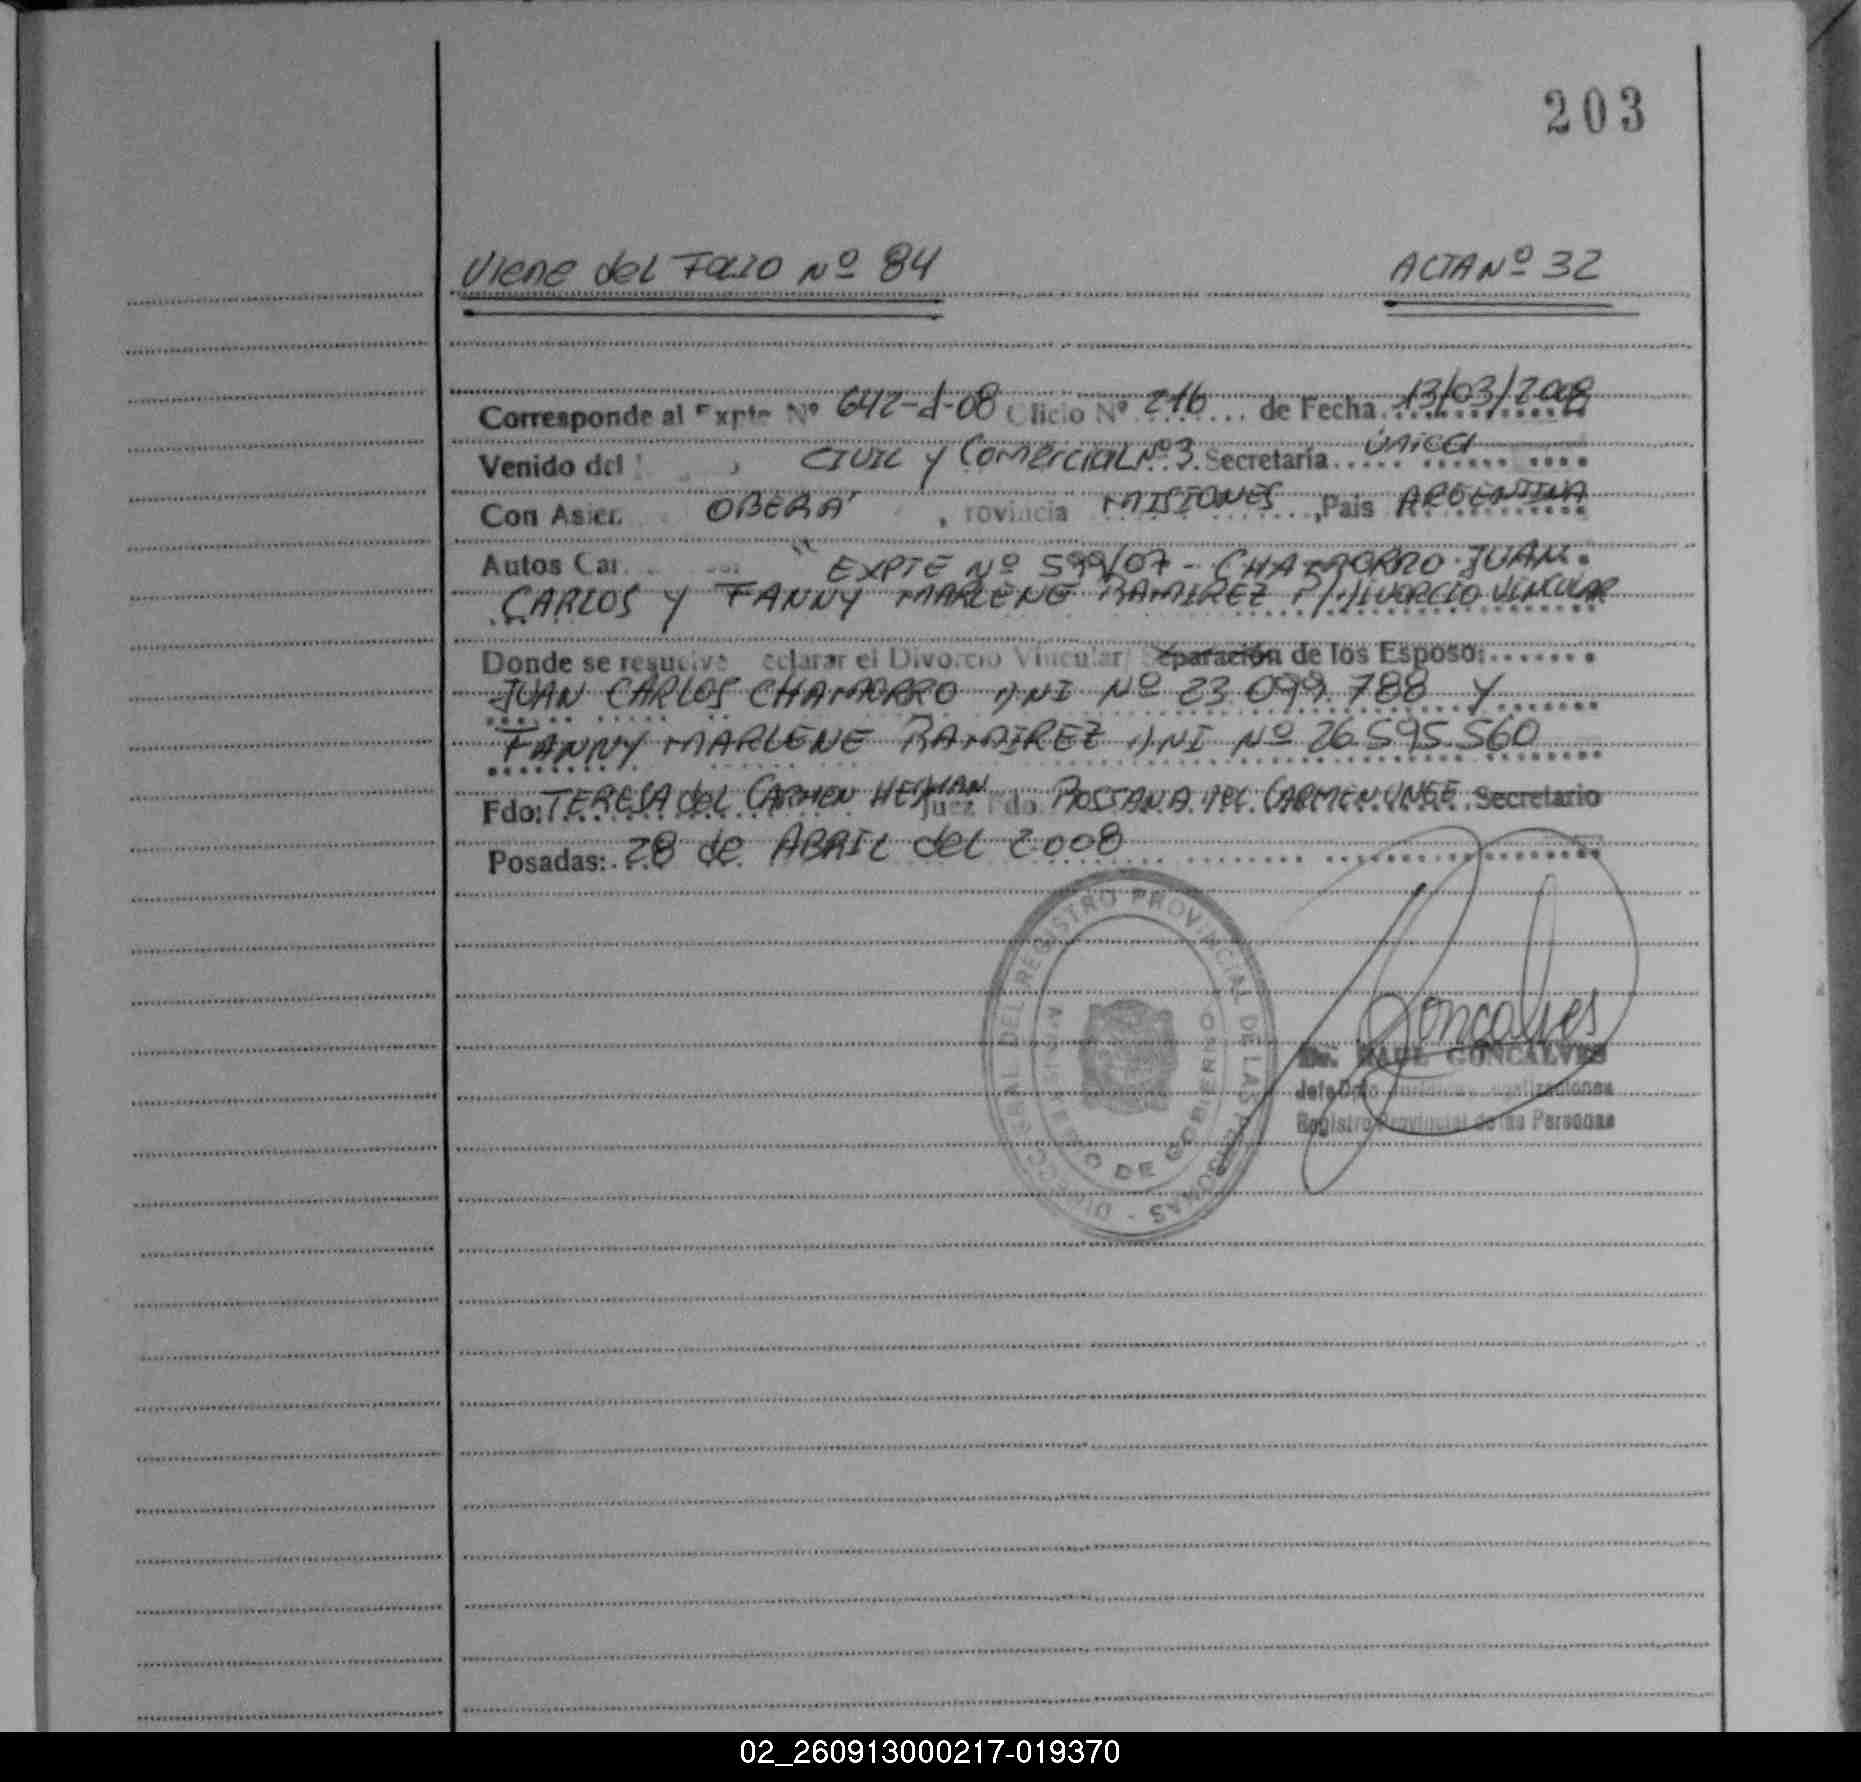 203
Viene del Folio Nº 84 ACTA Nº 32
Corresponde al Expte Nº 642-d-08 Oficio Nº 216 de Fecha 13/03/2008
Venido del CIVIL y Comercial Nº 3. Secretaría ÚNICA
Con Asien OBERÁ, Provincia MISIONES, País ARGENTINA
Autos Car EXPTE Nº 599/07 - CHAMORRO JUAN
CARLOS Y FANNY MARLENE RAMIREZ P/DIVORCIO VINCULAR
Donde se resuelve declarar el Divorcio Vincular/ Separación de los Esposo:
JUAN CARLOS CHAMORRO DNI Nº 23.099.788 Y
FANNY MARLENE RAMIREZ DNI Nº 26.595.560
Fdo: TERESA del CARMEN Juez Fdo. ROSSANA DEL CARMEN Secretario
Posadas: 28 de ABRIL del 2008
DIRECCION GRAL DEL REGISTRO PROVINCIAL DE LAS PERSONAS
MINISTERIO DE GOBIERNO
Goncalves
Dr. RAUL GONCALVES
Jefe Dpto
Registro Provincial de las Personas
02_260913000217-019370